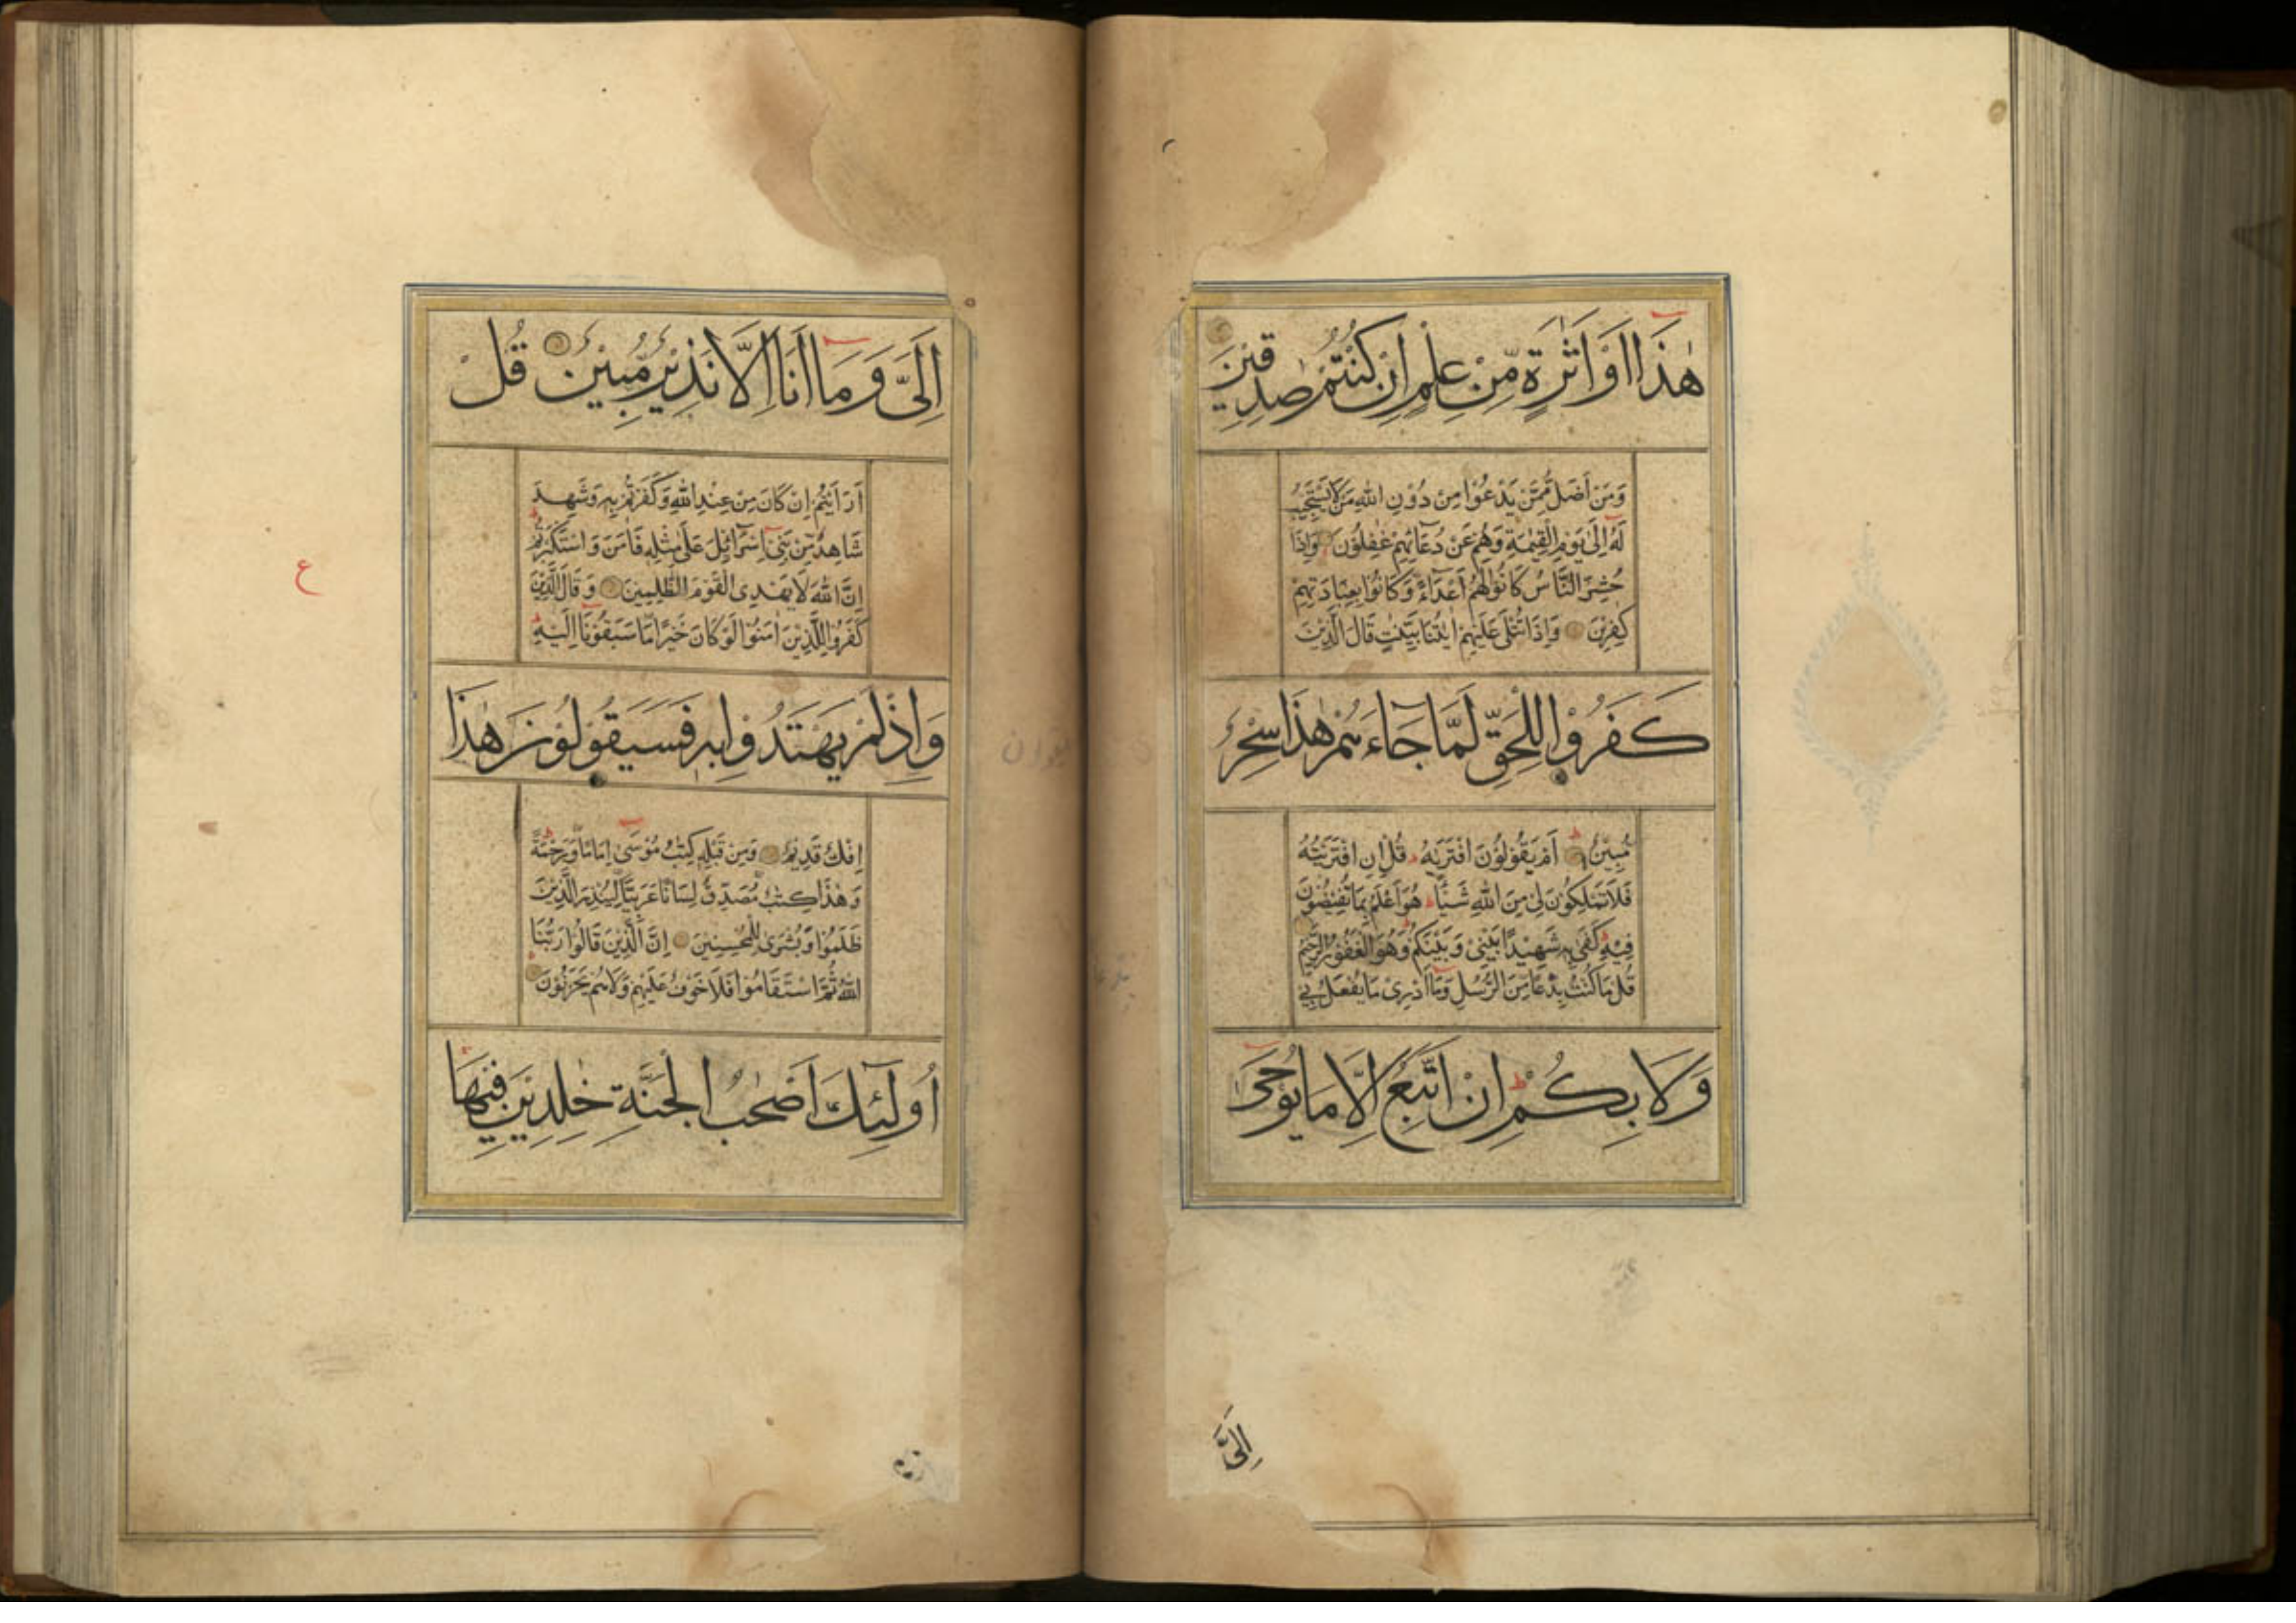 هٰذَا اَوْ اَثٰرَةٍ مِّنْ عِلْمٍ اِنْ كُنْتُمْ صٰدِقِيْنَ
وَمَنْ اَضَلُّ مِمَّنْ يَدْعُوْا مِنْ دُوْنِ اللّٰهِ مَنْ لَا يَسْتَجِيْبُ
لَهٗ اِلٰى يَوْمِ الْقِيٰمَةِ وَهُمْ عَنْ دُعَآئِهِمْ غٰفِلُوْنَ وَاِذَا
حُشِرَ النَّاسُ كَانُوْا لَهُمْ اَعْدَآءً وَكَانُوْا بِعِبَادَتِهِمْ
كٰفِرِيْنَ وَاِذَا تُتْلٰى عَلَيْهِمْ اٰيٰتُنَا بَيِّنٰتٍ قَالَ الَّذِيْنَ
كَفَرُوْا لِلْحَقِّ لَمَّا جَآءَهُمْ هٰذَا سِحْرٌ
مُّبِيْنٌ اَمْ يَقُوْلُوْنَ افْتَرٰىهُ قُلْ اِنِ افْتَرَيْتُهٗ
فَلَا تَمْلِكُوْنَ لِيْ مِنَ اللّٰهِ شَيْـًٔا هُوَ اَعْلَمُ بِمَا تُفِيْضُوْنَ
فِيْهِ كَفٰى بِهٖ شَهِيْدًا بَيْنِيْ وَبَيْنَكُمْ وَهُوَ الْغَفُوْرُ الرَّحِيْمُ
قُلْ مَا كُنْتُ بِدْعًا مِّنَ الرُّسُلِ وَمَآ اَدْرِيْ مَا يُفْعَلُ بِيْ
وَلَا بِكُمْ اِنْ اَتَّبِعُ اِلَّا مَا يُوْحٰى
اِلَيَّ
اِلَيَّ وَمَا اَنَا اِلَّا نَذِيْرٌ مُّبِيْنٌ قُلْ
اَرَاَيْتُمْ اِنْ كَانَ مِنْ عِنْدِ اللّٰهِ وَكَفَرْتُمْ بِهٖ وَشَهِدَ
شَاهِدٌ مِّنْ بَنِيْ اِسْرَآئِيْلَ عَلٰى مِثْلِهٖ فَاٰمَنَ وَاسْتَكْبَرْتُمْ
اِنَّ اللّٰهَ لَا يَهْدِى الْقَوْمَ الظّٰلِمِيْنَ وَقَالَ الَّذِيْنَ
كَفَرُوْا لِلَّذِيْنَ اٰمَنُوْا لَوْ كَانَ خَيْرًا مَّا سَبَقُوْنَا اِلَيْهِ
وَاِذْ لَمْ يَهْتَدُوْا بِهٖ فَسَيَقُوْلُوْنَ هٰذَا
اِفْكٌ قَدِيْمٌ وَمِنْ قَبْلِهٖ كِتٰبُ مُوْسٰى اِمَامًا وَّرَحْمَةً
وَهٰذَا كِتٰبٌ مُّصَدِّقٌ لِّسَانًا عَرَبِيًّا لِّيُنْذِرَ الَّذِيْنَ
ظَلَمُوْا وَبُشْرٰى لِلْمُحْسِنِيْنَ اِنَّ الَّذِيْنَ قَالُوْا رَبُّنَا
اللّٰهُ ثُمَّ اسْتَقَامُوْا فَلَا خَوْفٌ عَلَيْهِمْ وَلَا هُمْ يَحْزَنُوْنَ
اُولٰٓئِكَ اَصْحٰبُ الْجَنَّةِ خٰلِدِيْنَ فِيْهَا
ع